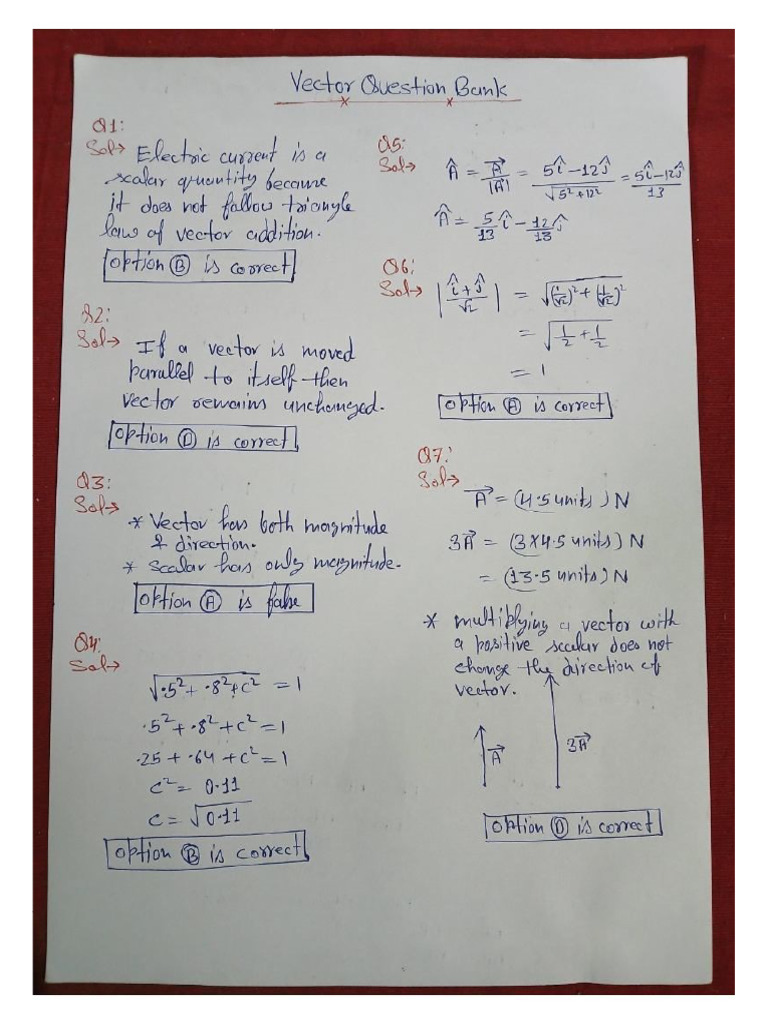 Vector Question Bank
Q1:
Sol→ Electric current is a
scalar quantity because
it does not follow triangle
law of vector addition.
option Ⓑ is correct
Q2:
Sol→ If a vector is moved
parallel to itself then
vector remains unchanged.
option Ⓓ is correct
Q3:
Sol→
* Vector has both magnitude
& direction.
* Scalar has only magnitude.
option Ⓐ is false
Q4:
Sol→
√.5² + .8² + c² = 1
.5² + .8² + c² = 1
.25 + .64 + c² = 1
c² = 0.11
c = √0.11
option Ⓑ is correct
Q5:
Sol→ Â = A⃗/|A⃗| = 5î-12ĵ/√5²+12² = 5î-12ĵ/13
Â = 5/13 î - 12/13 ĵ
Q6:
Sol→ |î+ĵ/√2| = √(1/√2)² + (1/√2)²
= √1/2 + 1/2
= 1
option Ⓐ is correct
Q7:
Sol→
A⃗ = (4.5 units) N
3A⃗ = (3×4.5 units) N
= (13.5 units) N
* multiplying a vector with
a positive scalar does not
change the direction of
vector.
A⃗
3A⃗
option Ⓓ is correct